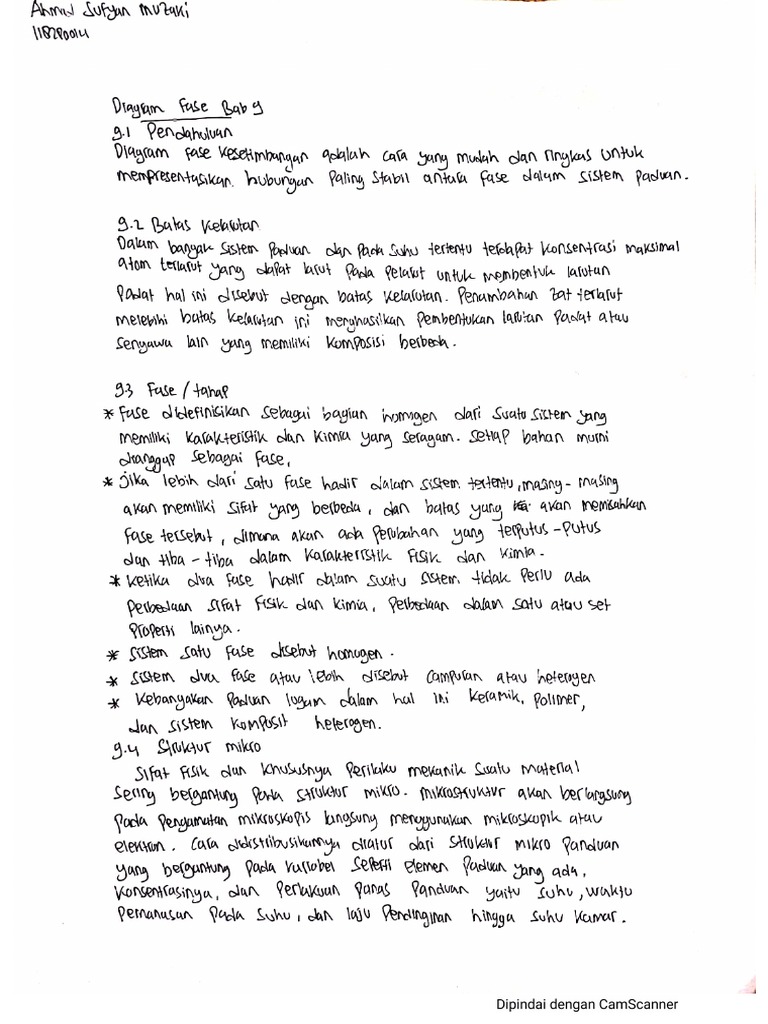 Ahmad Sufyan Muzaki
118290014
Diagram Fase Bab 9
9.1 Pendahuluan
Diagram fase kesetimbangan adalah cara yang mudah dan ringkas untuk
mempresentasikan hubungan Paling Stabil antara fase dalam sistem Paduan.
9.2 Batas Kelarutan
Dalam banyak sistem Paduan dan Pada Suhu tertentu terdapat Konsentrasi maksimal
atom terlarut yang dapat larut Pada Pelarut untuk membentuk larutan
Padat hal ini disebut dengan batas Kelarutan. Penambahan zat terlarut
melebihi batas Kelarutan ini menghasilkan Pembentukan larutan Padat atau
Senyawa lain yang memiliki Komposisi berbeda.
9.3 Fase / tahap
* Fase didefinisikan sebagai bagian homogen dari Suatu Sistem yang
memiliki Karakteristik dan Kimia yang seragam. Setiap bahan murni
dianggap sebagai fase,
* Jika lebih dari satu fase hadir dalam sistem tertentu, masing-masing
akan memiliki sifat yang berbeda, dan batas yang akan memisahkan
Fase tersebut, dimana akan ada Perubahan yang terputus-putus
dan tiba-tiba dalam Karakteristik Fisik dan Kimia.
* Ketika dua Fase hadir dalam suatu sistem tidak Perlu ada
Perbedaan Sifat Fisik dan Kimia, Perbedaan dalam satu atau set
Properti lainya.
* Sistem satu Fase disebut homogen.
* Sistem dua Fase atau lebih disebut Campuran atau heterogen
* Kebanyakan Paduan logam dalam hal ini Keramik, Polimer,
dan sistem Komposit heterogen.
9.4 Struktur mikro
Sifat Fisik dan Khususnya Perilaku mekanik Suatu Material
Sering bergantung Pada Struktur Mikro. Mikrostruktur akan berlangsung
Pada Pengamatan mikroskopis langsung menggunakan mikroskopik atau
elektron. Cara didistribusikannya diatur dari Struktur Mikro Panduan
yang bergantung Pada Variabel Seperti elemen Paduan yang ada,
Konsentrasinya, dan Perlakuan Panas Panduan yaitu Suhu, Waktu
Pemanasan Pada Suhu, dan laju Pendinginan hingga Suhu Kamar.
Dipindai dengan CamScanner